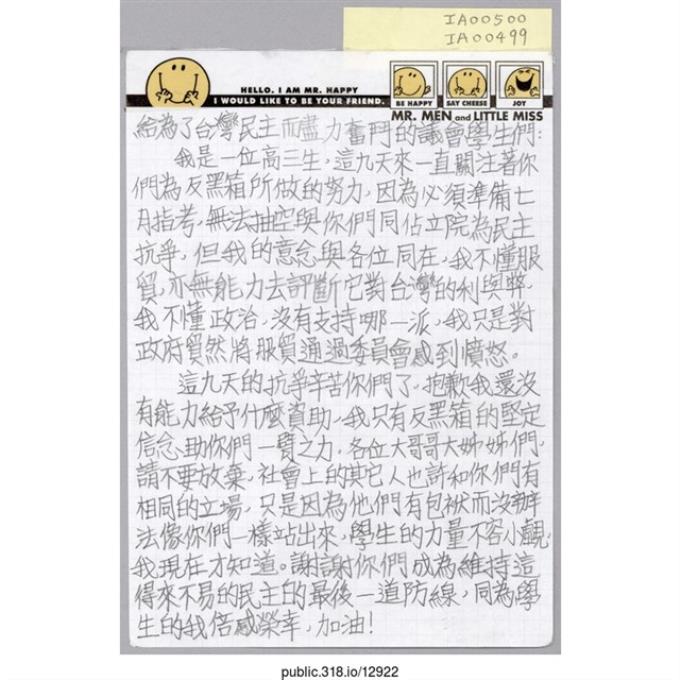 IA00500
IA00499
HELLO. I AM MR. HAPPY
I WOULD LIKE TO BE YOUR FRIEND.
BE HAPPY
SAY CHEESE
JOY
MR. MEN and LITTLE MISS
給為了台灣民主而盡力奮鬥的議會學生們:
我是一位高三生,這九天來一直關注著你
們為反黑箱所做的努力,因為必須準備七
月指考,無法抽空與你們同佔立院為民主
抗爭,但我的意念與各位同在,我不懂服
貿,亦無能力去評斷它對台灣的利與弊,
我不懂政治,沒有支持哪一派,我只是對
政府貿然將服貿通過委員會感到憤怒。
這九天的抗爭辛苦你們了,抱歉我還沒
有能力給予什麼資助,我只有反黑箱的堅定
信念,助你們一臂之力,各位大哥哥大姊姊們,
請不要放棄,社會上的其它人也許和你們有
相同的立場,只是因為他們有包袱而沒辦
法像你們一樣站出來,學生的力量不容小覷,
我現在才知道。謝謝你們成為維持這
得來不易的民主的最後一道防線,同為學
生的我倍感榮幸,加油!
public.318.io/12922